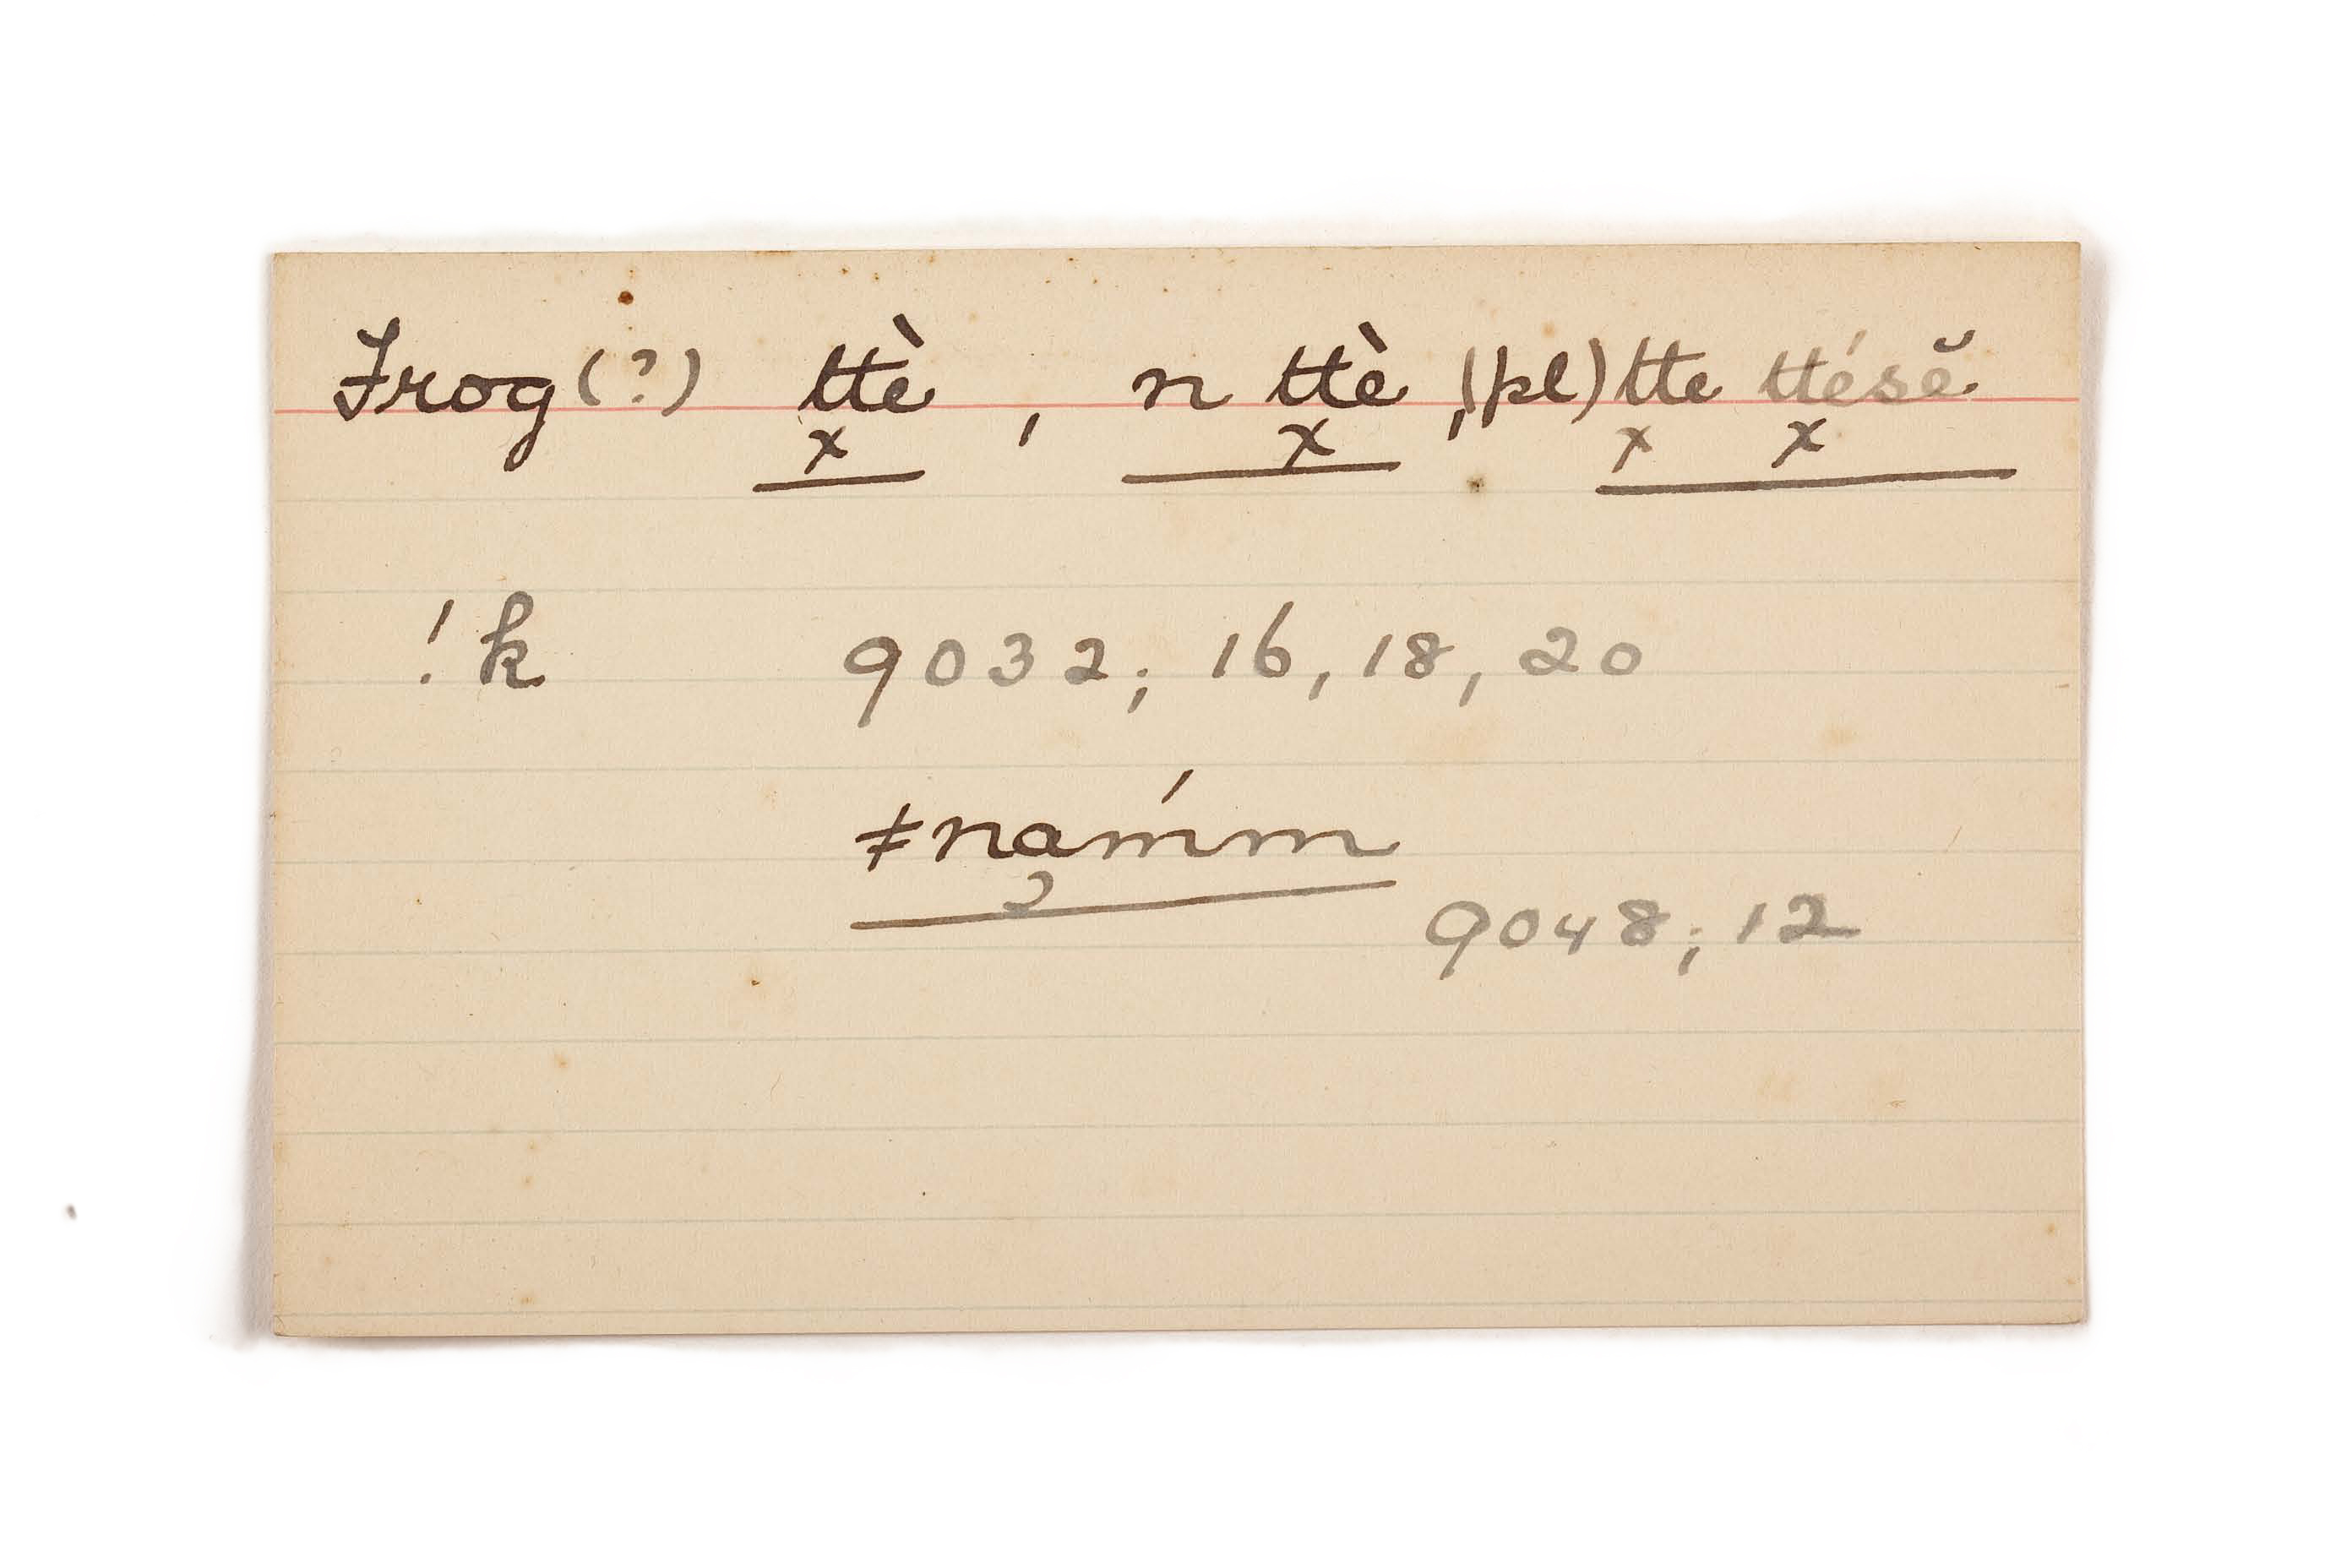 Frog (?) tt͓è, n tt͓è, (pl) tt͓e tt͓ésĕ
!k 9032; 16, 18, 20
ǂna̹ḿm
9048; 12